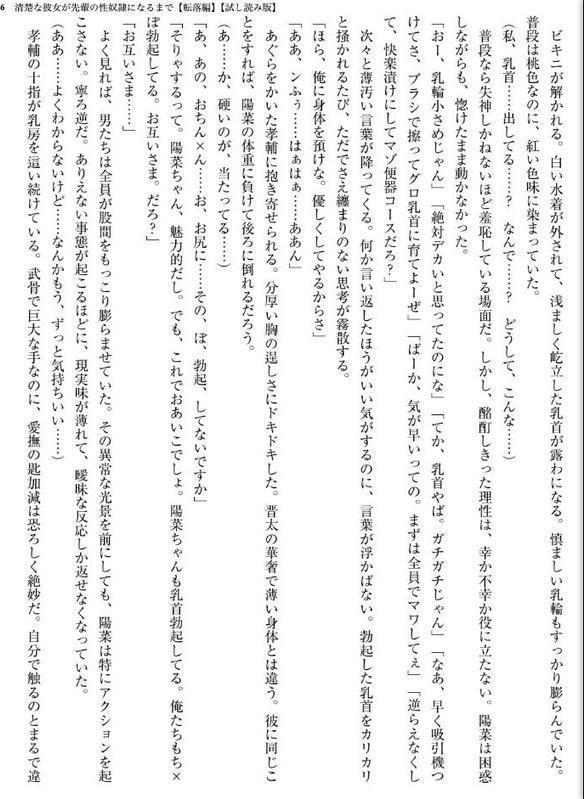 6　清楚な彼女が先輩の性奴隷になるまで【転落編】【試し読み版】
　ビキニが解かれる。白い水着が外されて、浅ましく屹立した乳首が露わになる。慎ましい乳輪もすっかり膨らんでいた。
普段は桃色なのに、紅い色味に染まっていた。
（私、乳首……出してる……？　なんで……？　どうして、こんな……）
　普段なら失神しかねないほど羞恥している場面だ。しかし、酩酊しきった理性は、幸か不幸か役に立たない。陽菜は困惑
しながらも、惚けたまま動かなかった。
「おー、乳輪小さめじゃん」「絶対デカいと思ってたのにな」「てか、乳首やば。ガチガチじゃん」「なあ、早く吸引機つ
けてさ、ブラシで擦ってグロ乳首に育てよーぜ」「ばーか、気が早いっての。まずは全員でマワしてぇ」「逆らえなくし
て、快楽漬けにしてマゾ便器コースだろ？」
　次々と薄汚い言葉が降ってくる。何か言い返したほうがいい気がするのに、言葉が浮かばない。勃起した乳首をカリカリ
と掻かれるたび、ただでさえ纏まりのない思考が霧散する。
「ほら、俺に身体を預けな。優しくしてやるからさ」
「ああ、ンふぅ……はぁはぁ……ああん」
　あぐらをかいた孝輔に抱き寄せられる。分厚い胸の逞しさにドキドキした。晋太の華奢で薄い身体とは違う。彼に同じこ
とをすれば、陽菜の体重に負けて後ろに倒れるだろう。
（あ……か、硬いのが、当たってる……）
「あ、あの、おちん×ん……お、お尻に……その、ぼ、勃起、してないですか」
「そりゃするって。陽菜ちゃん、魅力的だし。でも、これでおあいこでしょ。陽菜ちゃんも乳首勃起してる。俺たちもち×
ぽ勃起してる。お互いさま。だろ？」
「お互いさま……」
　よく見れば、男たちは全員が股間をもっこり膨らませていた。その異常な光景を前にしても、陽菜は特にアクションを起
こさない。寧ろ逆だ。ありえない事態が起こるほどに、現実味が薄れて、曖昧な反応しか返せなくなっていた。
（ああ……よくわからないけど……なんかもう、ずっと気持ちいい……）
　孝輔の十指が乳房を這い続けている。武骨で巨大な手なのに、愛撫の匙加減は恐ろしく絶妙だ。自分で触るのとまるで違